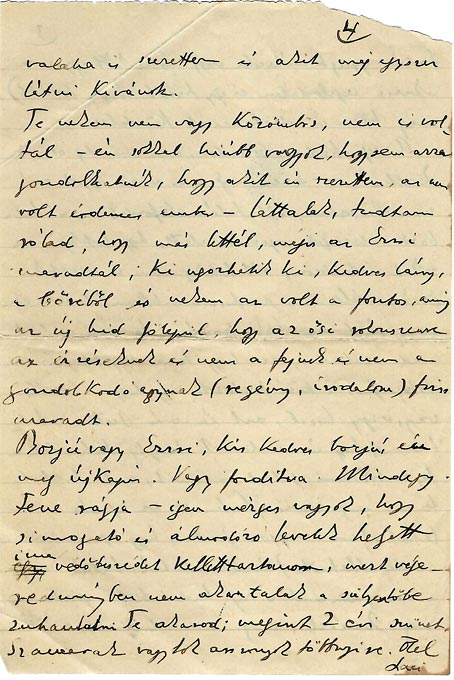 4
valaha is szerettem és akit még egyszer
látni kívánok.
Te nekem nem vagy közömbös, nem is vol-
tál – én sokkal hiúbb vagyok, hogysem arra
gondolhatnék, hogy akit én szerettem, az nem
volt érdemes ember – láttalak, tudtam
rólad, hogy más lettél, mégis az Erzsi
maradtál, ki ugorhatik ki, kedves lány,
a bőréből és nekem az volt a fontos, amíg
az új híd fölépül, hogy az ősi
az érzéseknek és nem a fejnek és nem a
gondolkodó agynak (regény, irodalom) friss
maradt.
Borjú vagy Erzsi, kis kedves borjú én
meg újkapu. Vagy fordítva. Mindegy.
Fene rágja – igen mérges vagyok, hogy
simogató és álmodozó levelek helyett
íme védőbeszédet kellett tartanom, mert vége-
redményben nem akartalak a
zuhantatni Te akarod; megint 2 évi szünet.
Szamarak vagytok asszonyok Ölel
Laci